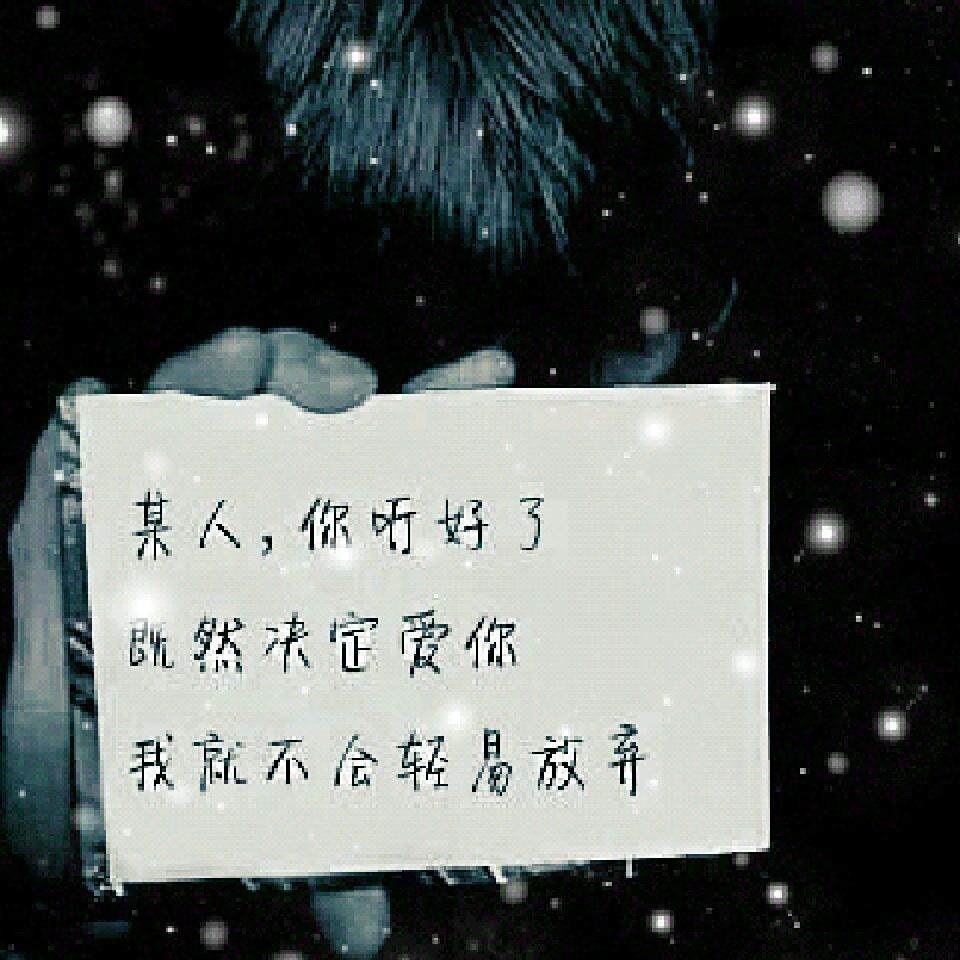 某人,你听好了
既然决定爱你
我就不会轻易放弃